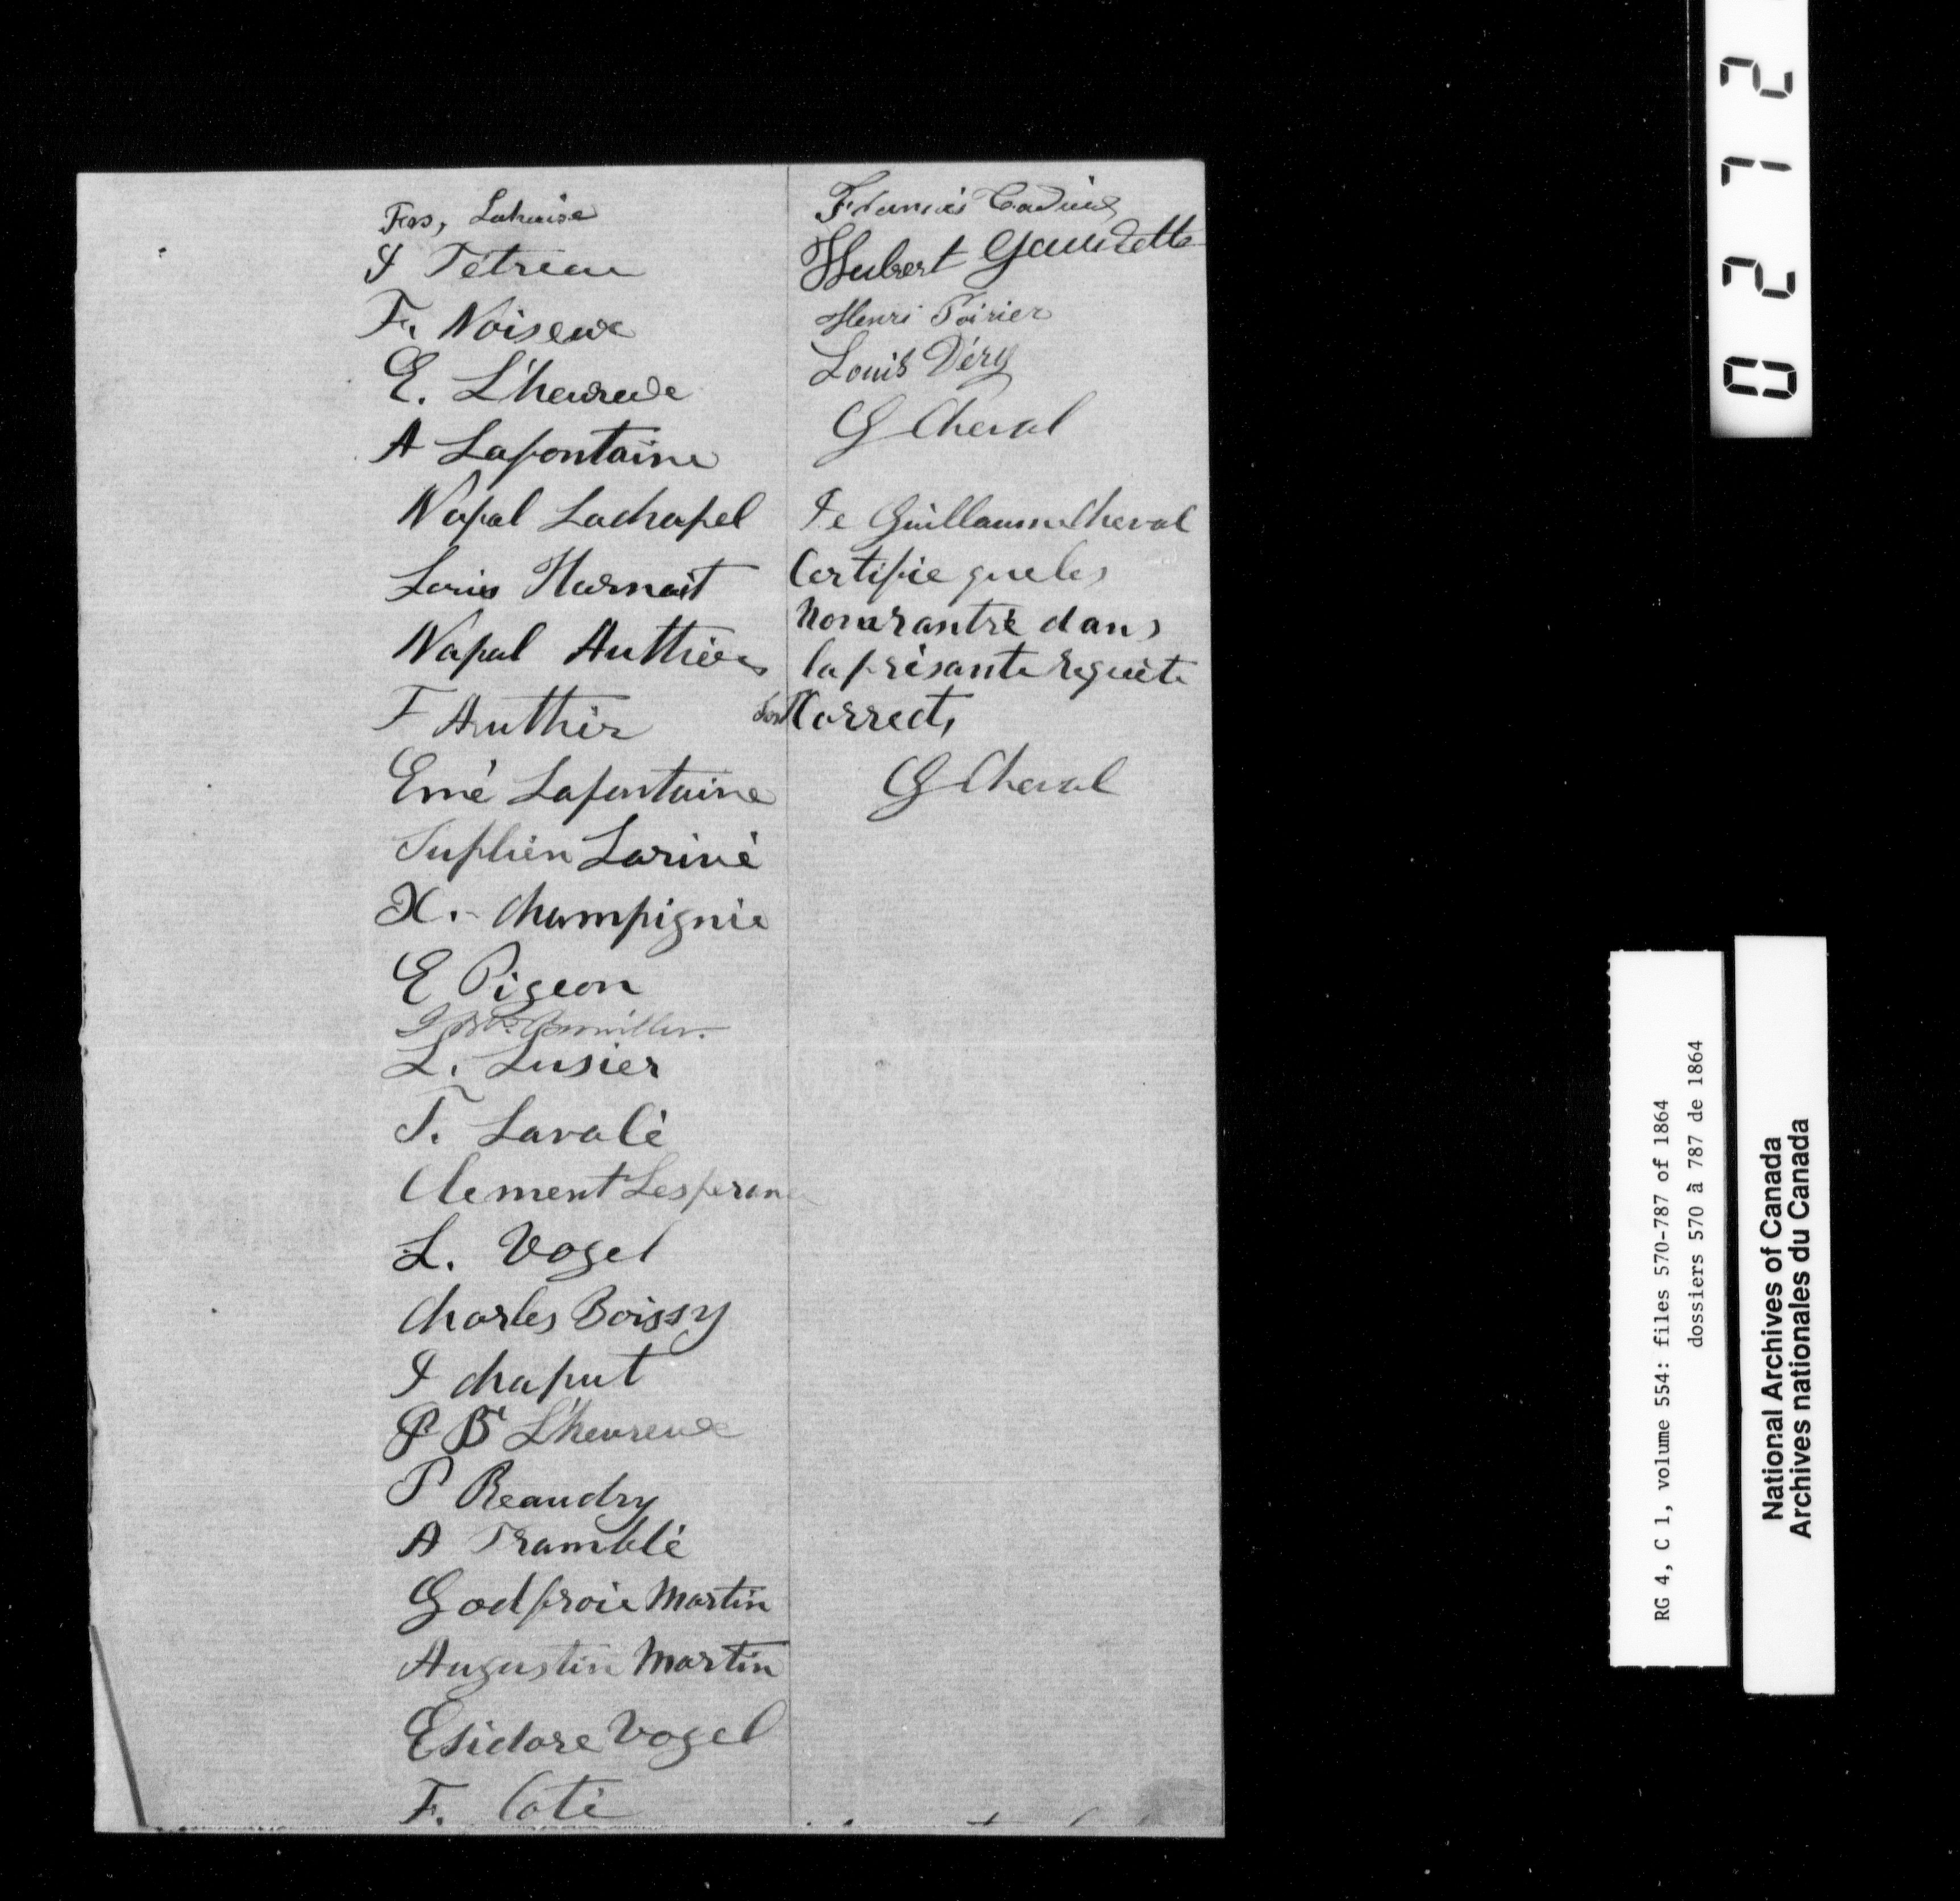 Frs, Lahaise
J Tétreau
F. Noiseux
E. L'heureux
A Lafontaine
Napal Lachapel
Louis Harnait
Napal Authier
F Authir
Emé Lafontaine
Suplien Larivé
X. Champignie
E Pigeon
L. Lusier
T. Lavalé
Clement Lesperan
L. Vogel
Charles Boissy
J chaput
P Bt L'heureux
P Beaudry
A Tramblé
Godfroie Martin
Augustin Martin
Esidore Vogel
F. Coté
Francis
Hubert Gaudette
Henri Poirier
Louis Déry
G Cheval
Je Guillaume Cheval
Certifie que les
nom rantré dans
la présante requète
sont Correct,
G Cheval
0272
RG 4, C 1, volume 554: files 570-787 of 1864
dossiers 570 à 787 de 1864
National Archives of Canada
Archives nationales du Canada